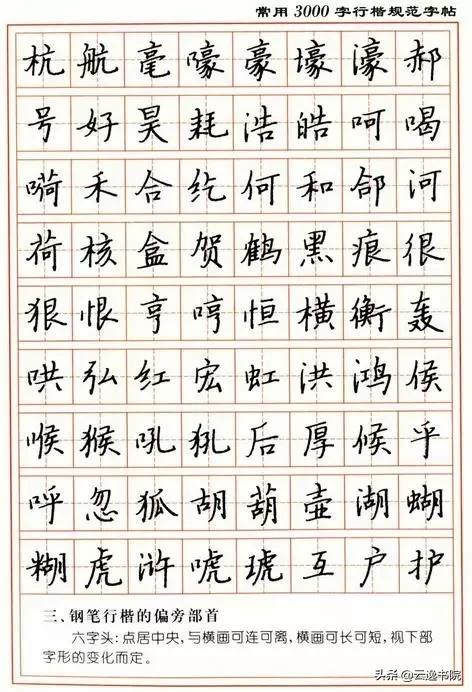 常用3000字行楷规范字帖
杭航毫嚎豪壕濠郝
号好昊耗浩皓呵喝
嗬禾合纥何和郃河
荷核盒贺鹤黑痕很
狠恨亨哼恒横衡轰
哄弘红宏虹洪鸿侯
喉猴吼犼后厚候乎
呼忽狐胡葫壶湖蝴
糊虎浒唬琥互户护
三、钢笔行楷的偏旁部首
六字头:点居中央,与横画可连可离,横画可长可短,视下部
字形的变化而定。
头条@云逸书院